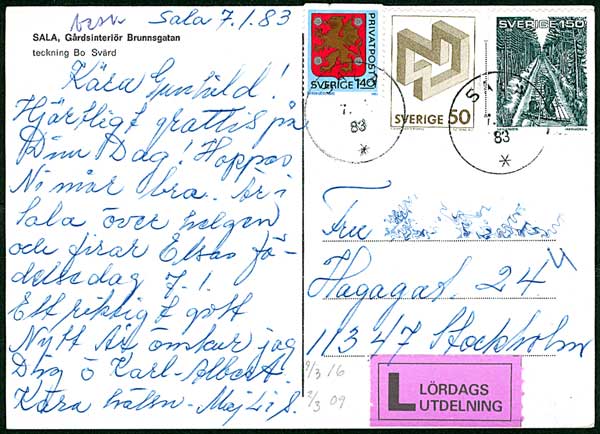 besv
Sala 7.1.83
SALA, Gårdsinteriör Brunnsgatan
teckning Bo Svärd
Kära Gunhild!
Hjärtligt grattis på
Dinn Dag! Hoppas
Ni mår bra. Är i
Sala över helgen
och firar Elsas fö-
delsedag 7.1.
Ett riktigt gott
Nytt År önskar jag
Dig o Karl-Albert.
Kära hälsn. Maj Lis.
PRIVATPOST
SVERIGE 140
SVERIGE 50
SVERIGE 150
83
*
83
*
Fru
Hagagat. 24
11347 Stockholm
9/3 16
9/3 09
L LÖRDAGS
UTDELNING